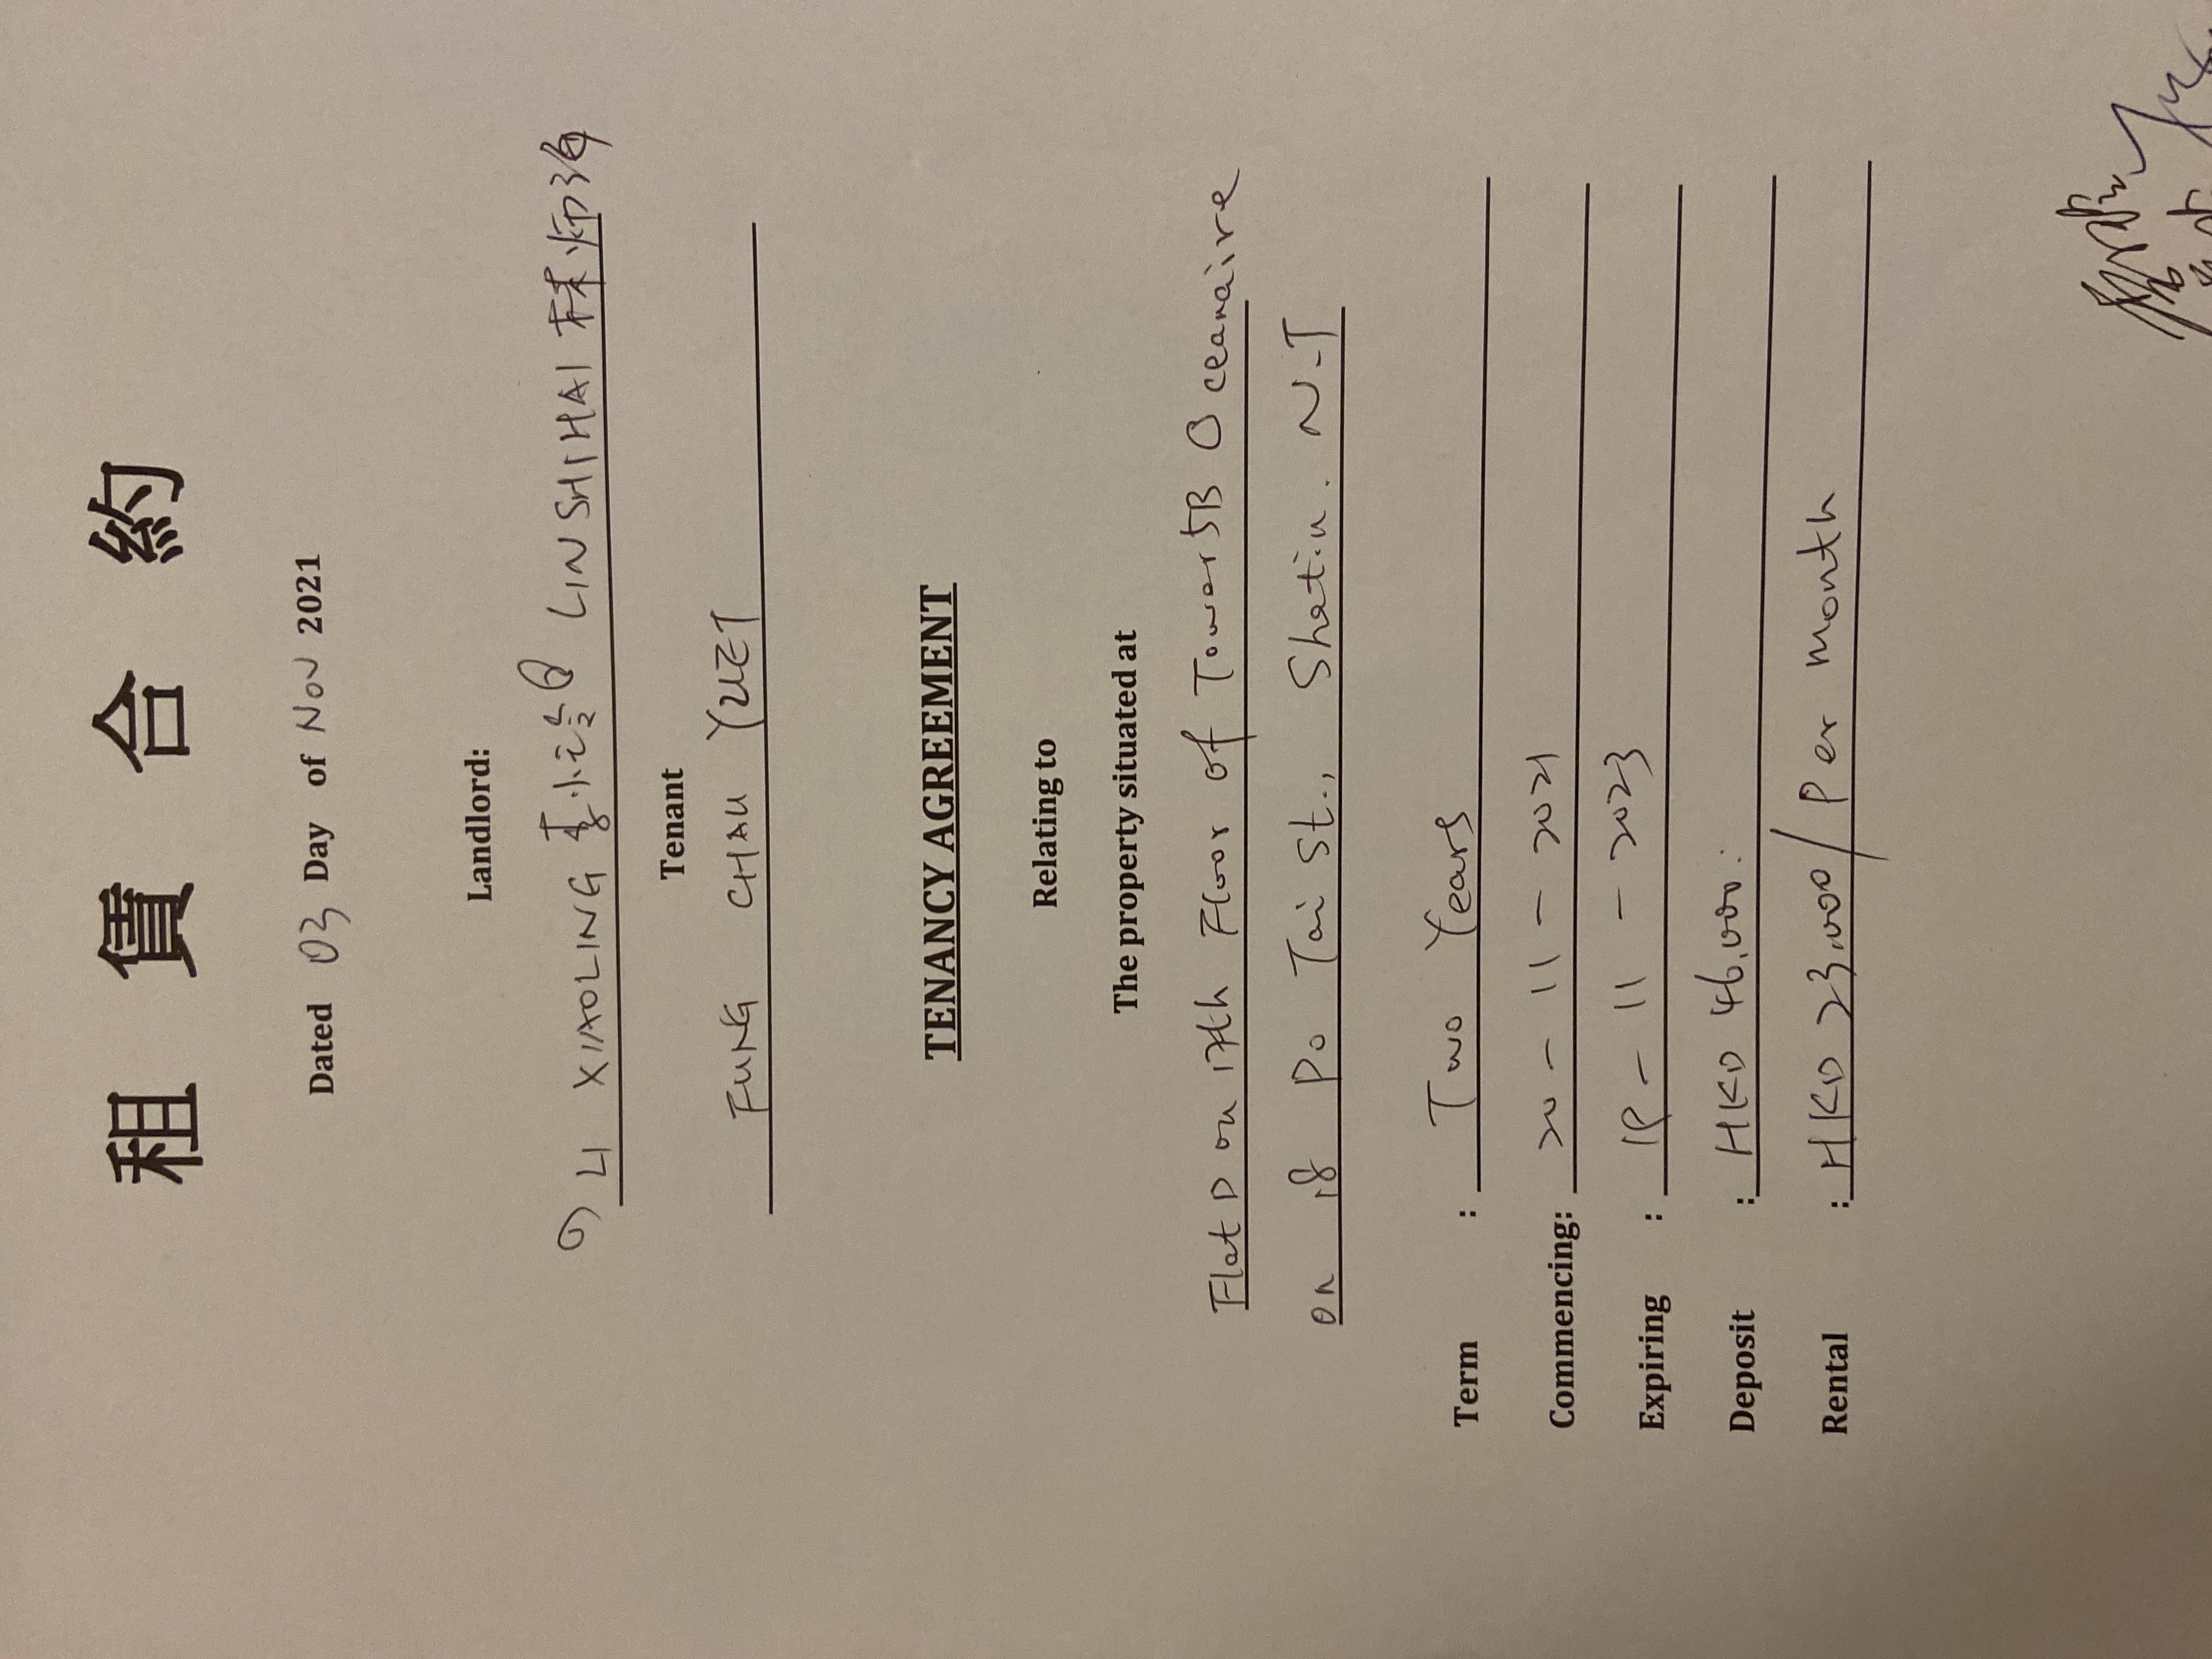 租賃合約
Dated 03 Day of Nov 2021
Landlord:
① LI XIAOLING 李小玲 ② LIN SHIHAI 林师海
Tenant
FUNG CHAU YUET
TENANCY AGREEMENT
Relating to
The property situated at
Flat D on 17th Floor of Tower 5B Oceanaire
on 18 Po Tai St., Shatin. N.T
Term : Two Years
Commencing: 20 - 11 - 2021
Expiring : 19 - 11 - 2023
Deposit : HKD 46,000.
Rental : HKD 23,000 / Per month